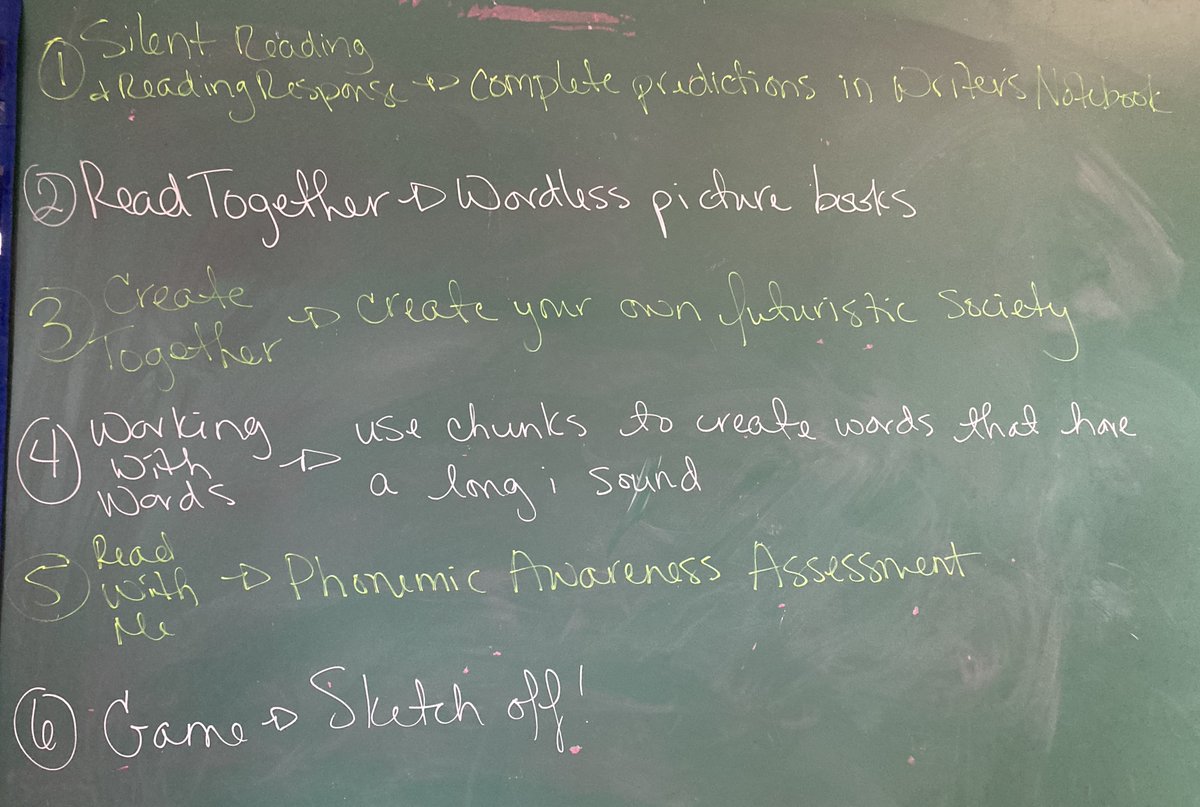 ① Silent Reading
+ Reading Response → Complete predictions in Writer's Notebook
② Read Together → Wordless picture books
③ Create
Together → Create your own futuristic society
④ Working
With
Words → use chunks to create words that have
a long i sound
⑤ Read
With
Me → Phonemic Awareness Assessment
⑥ Game → Sketch off!